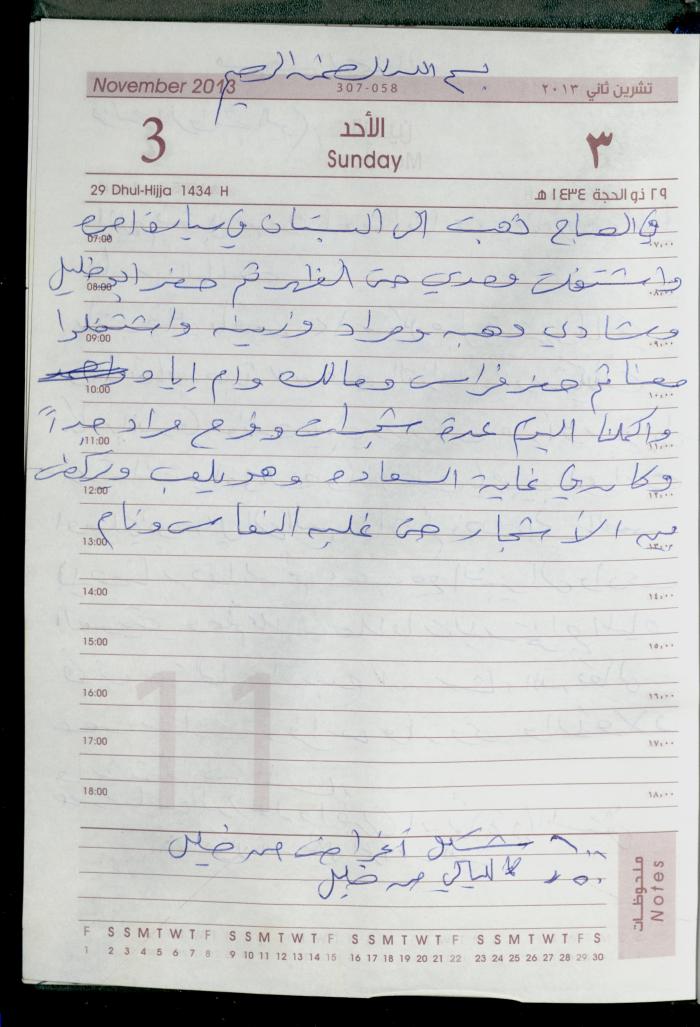 بسم الله الرحمن الرحيم
November 2013
307-058
تشرين ثاني ٢٠١٣
3
الأحد
Sunday
٣
29 Dhul-Hijja 1434 H
٢٩ ذو الحجة ١٤٣٤ هـ
في الصباح ذهبت الى البستان في سيارة
07:00
٠٧,٠٠
واشتغلت وحدي حتى الظهر ثم حضر ابو خليل
08:00
٠٨,٠٠
وشادي وهبه ومراد وزينه واشتغلوا
09:00
٠٩,٠٠
معنا ثم حضر فراس ومالك وام إياد
10:00
١٠,٠٠
واكملنا اليوم عدة شجرات وفرح مراد جداً
11:00
١١,٠٠
وكان في غاية السعاده وهو يلعب ويركض
12:00
١٢,٠٠
بين الأشجار حتى غلبه النعاس ونام
13:00
١٣,٠٠
14:00
١٤,٠٠
15:00
١٥,٠٠
16:00
١٦,٠٠
17:00
١٧,٠٠
18:00
١٨,٠٠
11
أغراض من خليل
من خليل
ملحوظات
Notes
F S S M T W T F S S M T W T F S S M T W T F S S M T W T F S
1 2 3 4 5 6 7 8 9 10 11 12 13 14 15 16 17 18 19 20 21 22 23 24 25 26 27 28 29 30